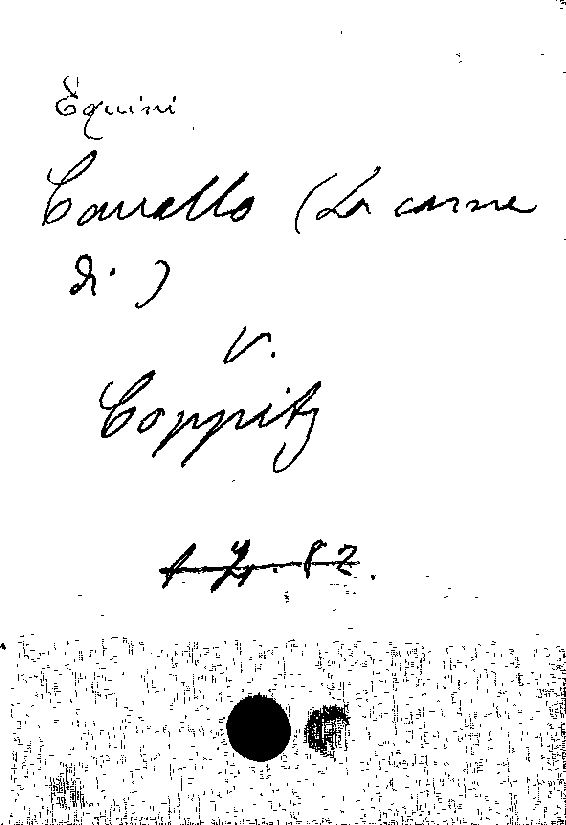 Equini
Cavallo (La carne
di.)
v.
Coppitz